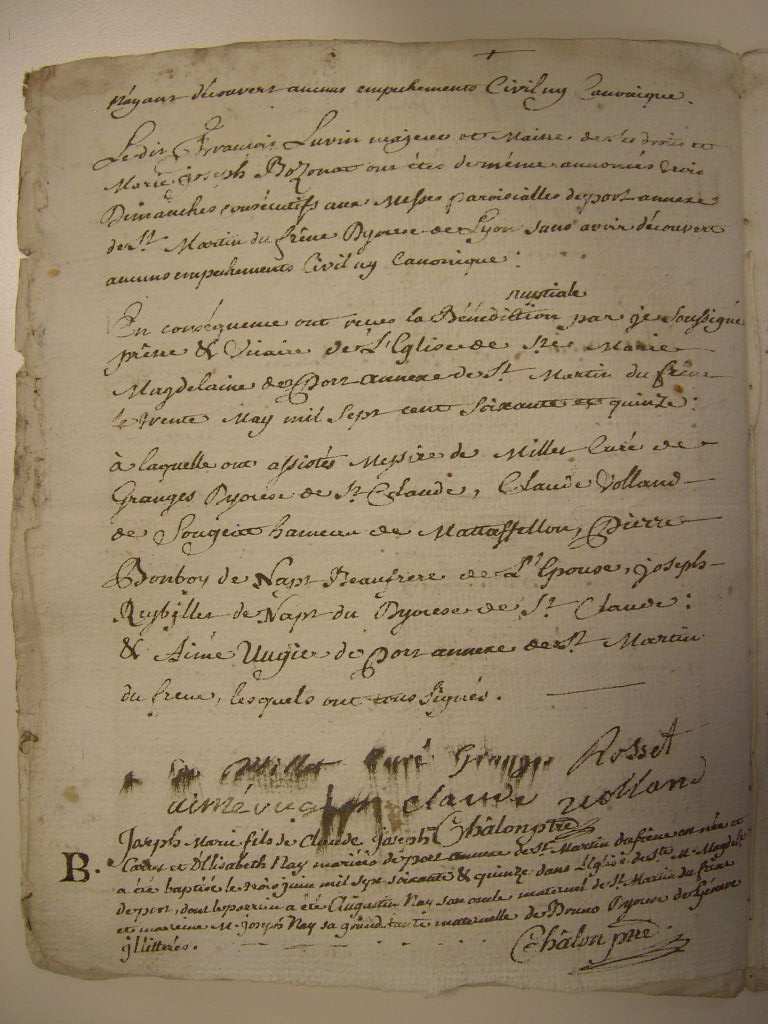 N'ayant découvert aucuns empechements Civil ny Canonique.
Ledit François Luvin majeur et Maitre de Ses droits et
Marie joseph Bozonat ont étés de même annoncés trois
Dimanches consécutifs aux Messes paroissialles de port annexe
de St. Martin du frêne Dyocese de Lyon sans avoir découvert
aucuns empechements Civil ny Canonique :
nuptiale
En conséquence ont reçus la Bénédiction par je Soussigné
prêtre & Vicaire de L'Eglise de Ste Marie
Magdelaine de Port annexe de St. Martin du frêne
le trente May mil Sept cent Soixante et quinze :
à laquelle ont assistés Messire de Millet Curé de
Granges Dyocese de St Claude, Claude Volland
de Sougeat hameau de Mattaffellon, Pierre
Bonboy de Napt Beaufrere de L'Epouse, joseph
Reybillet de Napt du Dyocese de St. Claude :
& Aimé Vugie de Port annexe de St. Martin
du frene, lesquels ont tous Signés.
Millet Curé Grange Rosset
aimé claude volland
Châlon ptre
B. Joseph Marie fils de Claude Joseph
et Elisabeth Nay mariés de port annexe de St. Martin du frêne est née et
a été baptisé le trois juin mil sept soixante & quinze dans L'Eglise de Ste M. Magdel.
de port, dont le parrein a été Augustin Nay son oncle maternel de St. Martin du frêne
et mareine M. joseph Nay sa grand tante maternelle de Dyocese de Geneve
jllittrés.
Châlon ptre